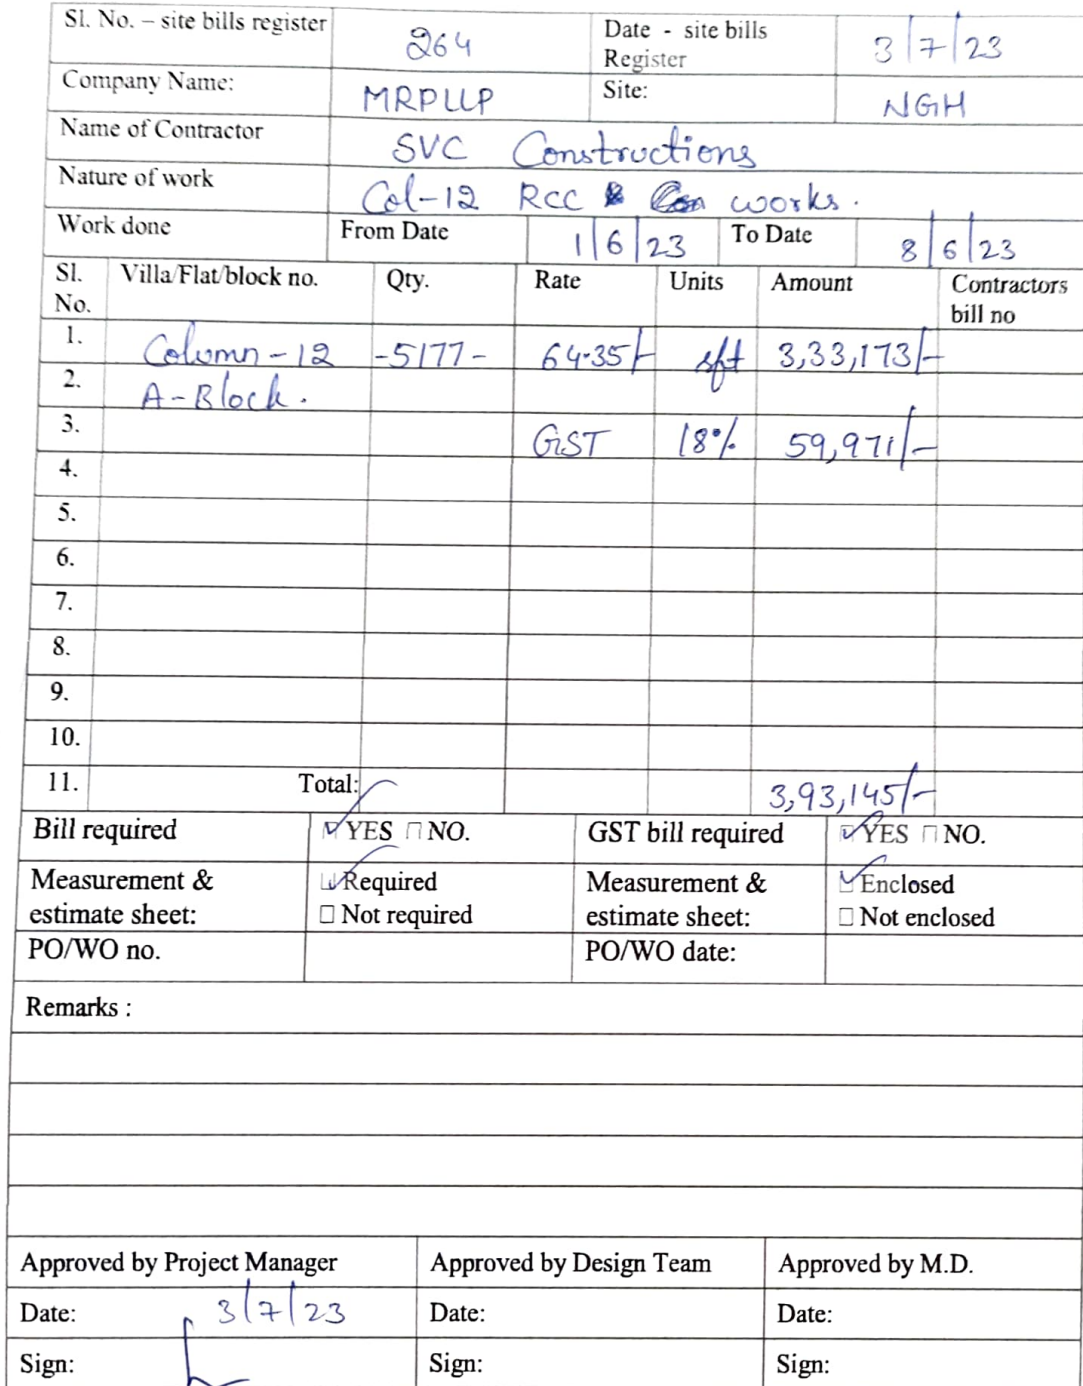 Sl. No. – site bills register 264 Date - site bills Register 3/7/23
Company Name: MRPLLP Site: NGH
Name of Contractor SVC Constructions
Nature of work Col-12 RCC works.
Work done From Date 1/6/23 To Date 8/6/23
Sl. No. Villa/Flat/block no. Qty. Rate Units Amount Contractors bill no
1. Column-12 -5177- 64.35/- sft 3,33,173/-
2. A-Block.
3. GST 18% 59,971/-
4.
5.
6.
7.
8.
9.
10.
11. Total: 3,93,145/-
Bill required ☑ YES □ NO. GST bill required ☑ YES □ NO.
Measurement & estimate sheet: ☑ Required □ Not required Measurement & estimate sheet: ☑ Enclosed □ Not enclosed
PO/WO no. PO/WO date:
Remarks :
Approved by Project Manager Approved by Design Team Approved by M.D.
Date: 3/7/23 Date: Date:
Sign: Sign: Sign: